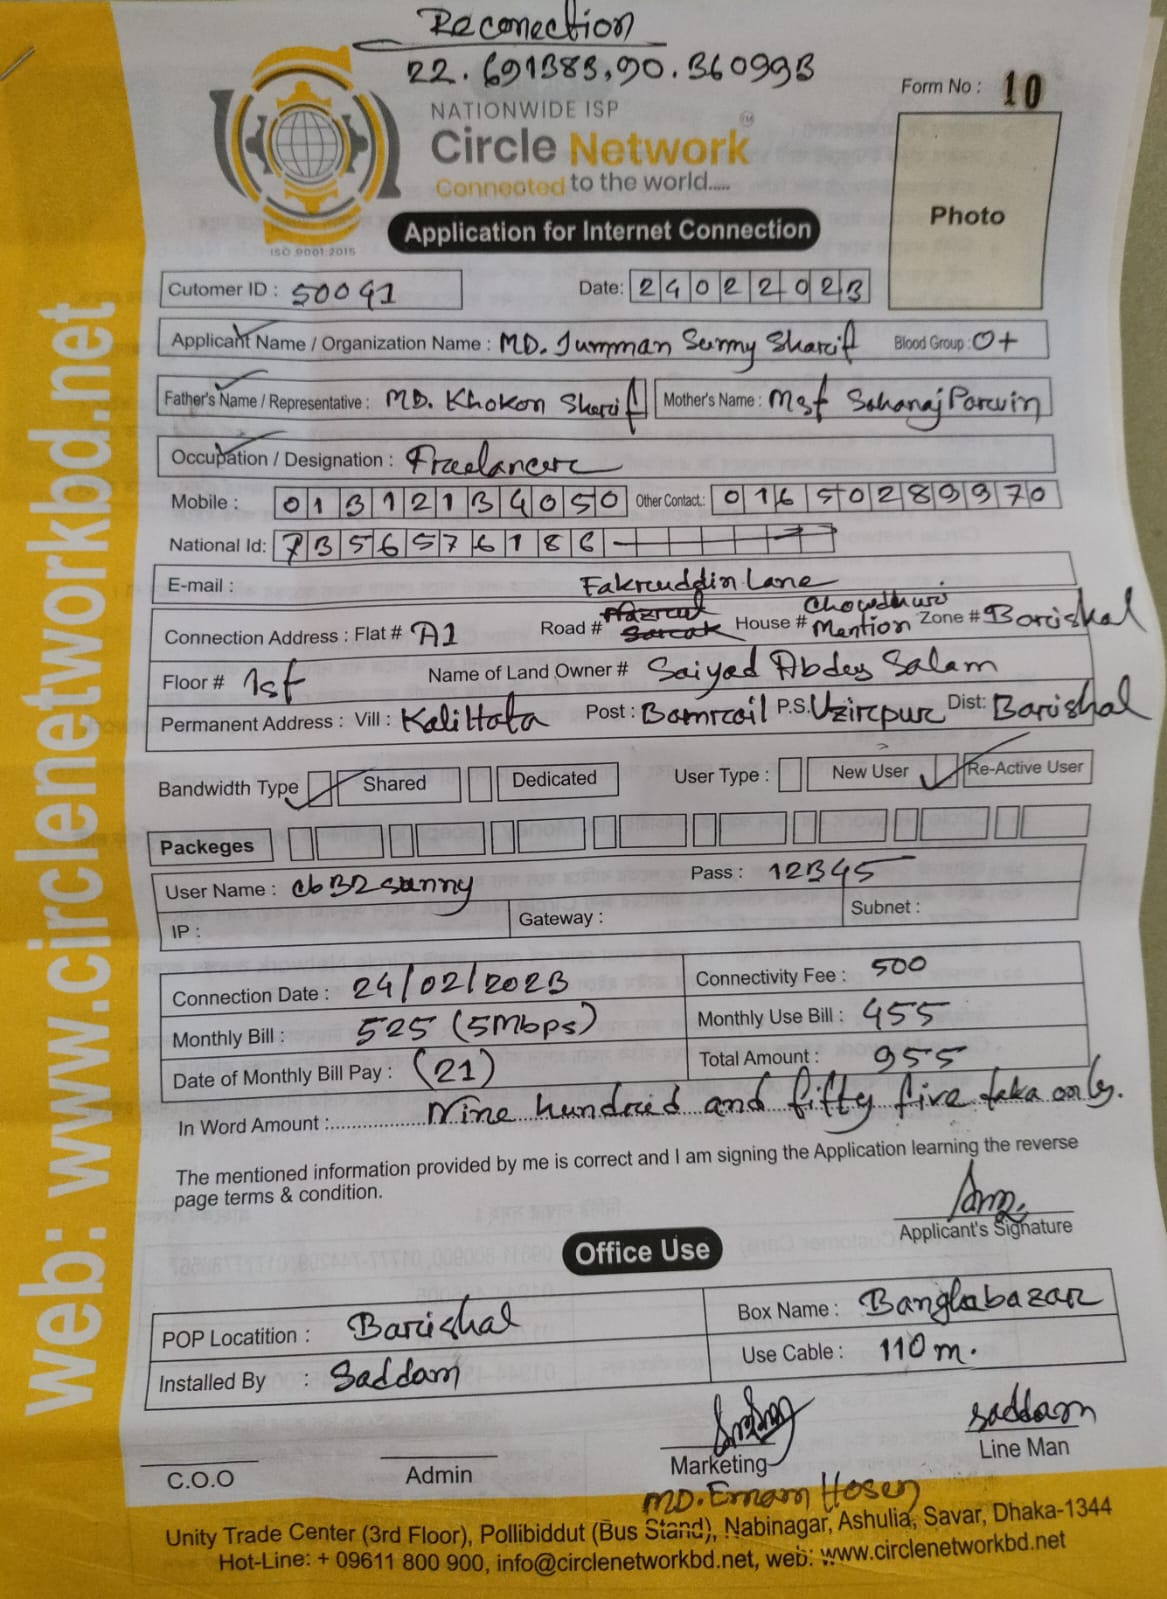 Reconection
22.691383,90.360993
Form No : 10
NATIONWIDE ISP
Circle Network
Connected to the world.....
ISO 9001:2015
Photo
Application for Internet Connection
Cutomer ID : 50091
Date: 24022023
Applicant Name / Organization Name : MD. Jumman Sunny Sharif Blood Group : O+
Father's Name / Representative : MD. Khokon Sharif Mother's Name : Mst Sahanaj Parvin
Occupation / Designation : Freelancer
Mobile : 01312134050 Other Contact.: 01650289970
National Id: 7356576186
E-mail :
Fakruddin Lane
Connection Address : Flat # A1 Road # House # Chowdhuri Mention Zone # Barishal
Floor # 1st Name of Land Owner # Saiyed Abdes Salam
Permanent Address : Vill : Kalihata Post : Bamrail P.S. Uzirpur Dist: Barishal
Bandwidth Type Shared Dedicated User Type : New User Re-Active User
Packeges
User Name : cb32sunny Pass : 12345
IP : Gateway : Subnet :
Connection Date : 24/02/2023 Connectivity Fee : 500
Monthly Bill : 525 (5Mbps) Monthly Use Bill : 455
Date of Monthly Bill Pay : (21) Total Amount : 955
In Word Amount :..... Nine hundred and fifty five taka only.
The mentioned information provided by me is correct and I am signing the Application learning the reverse
page terms & condition.
Applicant's Signature
Office Use
POP Locatition : Barishal Box Name : Banglabazar
Installed By : Saddam Use Cable : 110 m.
saddam
C.O.O Admin Marketing Line Man
MD. Emam Hosen
Unity Trade Center (3rd Floor), Pollibiddut (Bus Stand), Nabinagar, Ashulia, Savar, Dhaka-1344
Hot-Line: + 09611 800 900, info@circlenetworkbd.net, web: www.circlenetworkbd.net
web: www.circlenetworkbd.net